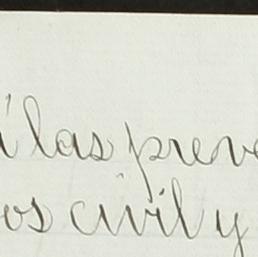 á las preve
os civil y